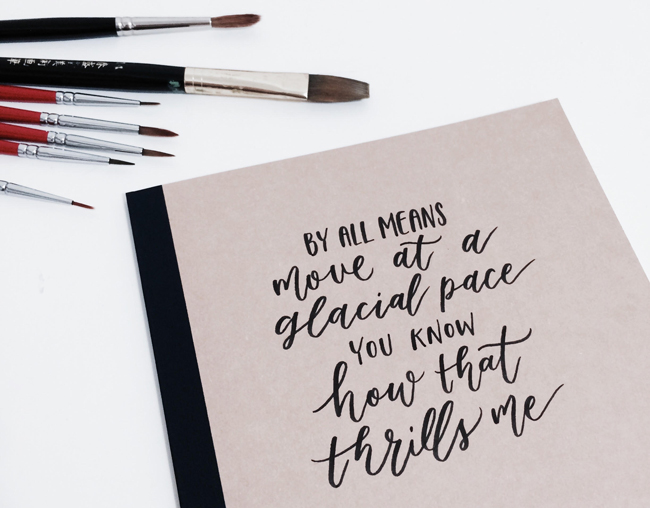 BY ALL MEANS
move at a
glacial pace
YOU KNOW
how that
thrills me